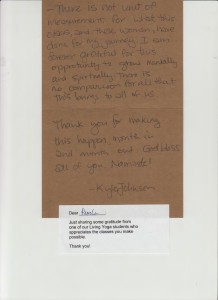 - There is not unit of
measurement for what this
class, and those women, have
done for my journey. I am
forever grateful for this
opportunity to grow mentally
and spiritually. There is
no comparison for all that
this brings to all of us.
Thank you for making
this happen, month in
and month out. God bless
all of you. Namaste!
- Kyla Johnson
Dear
Just sharing some gratitude from
one of our Living Yoga students who
appreciates the classes you make
possible.
Thank you!